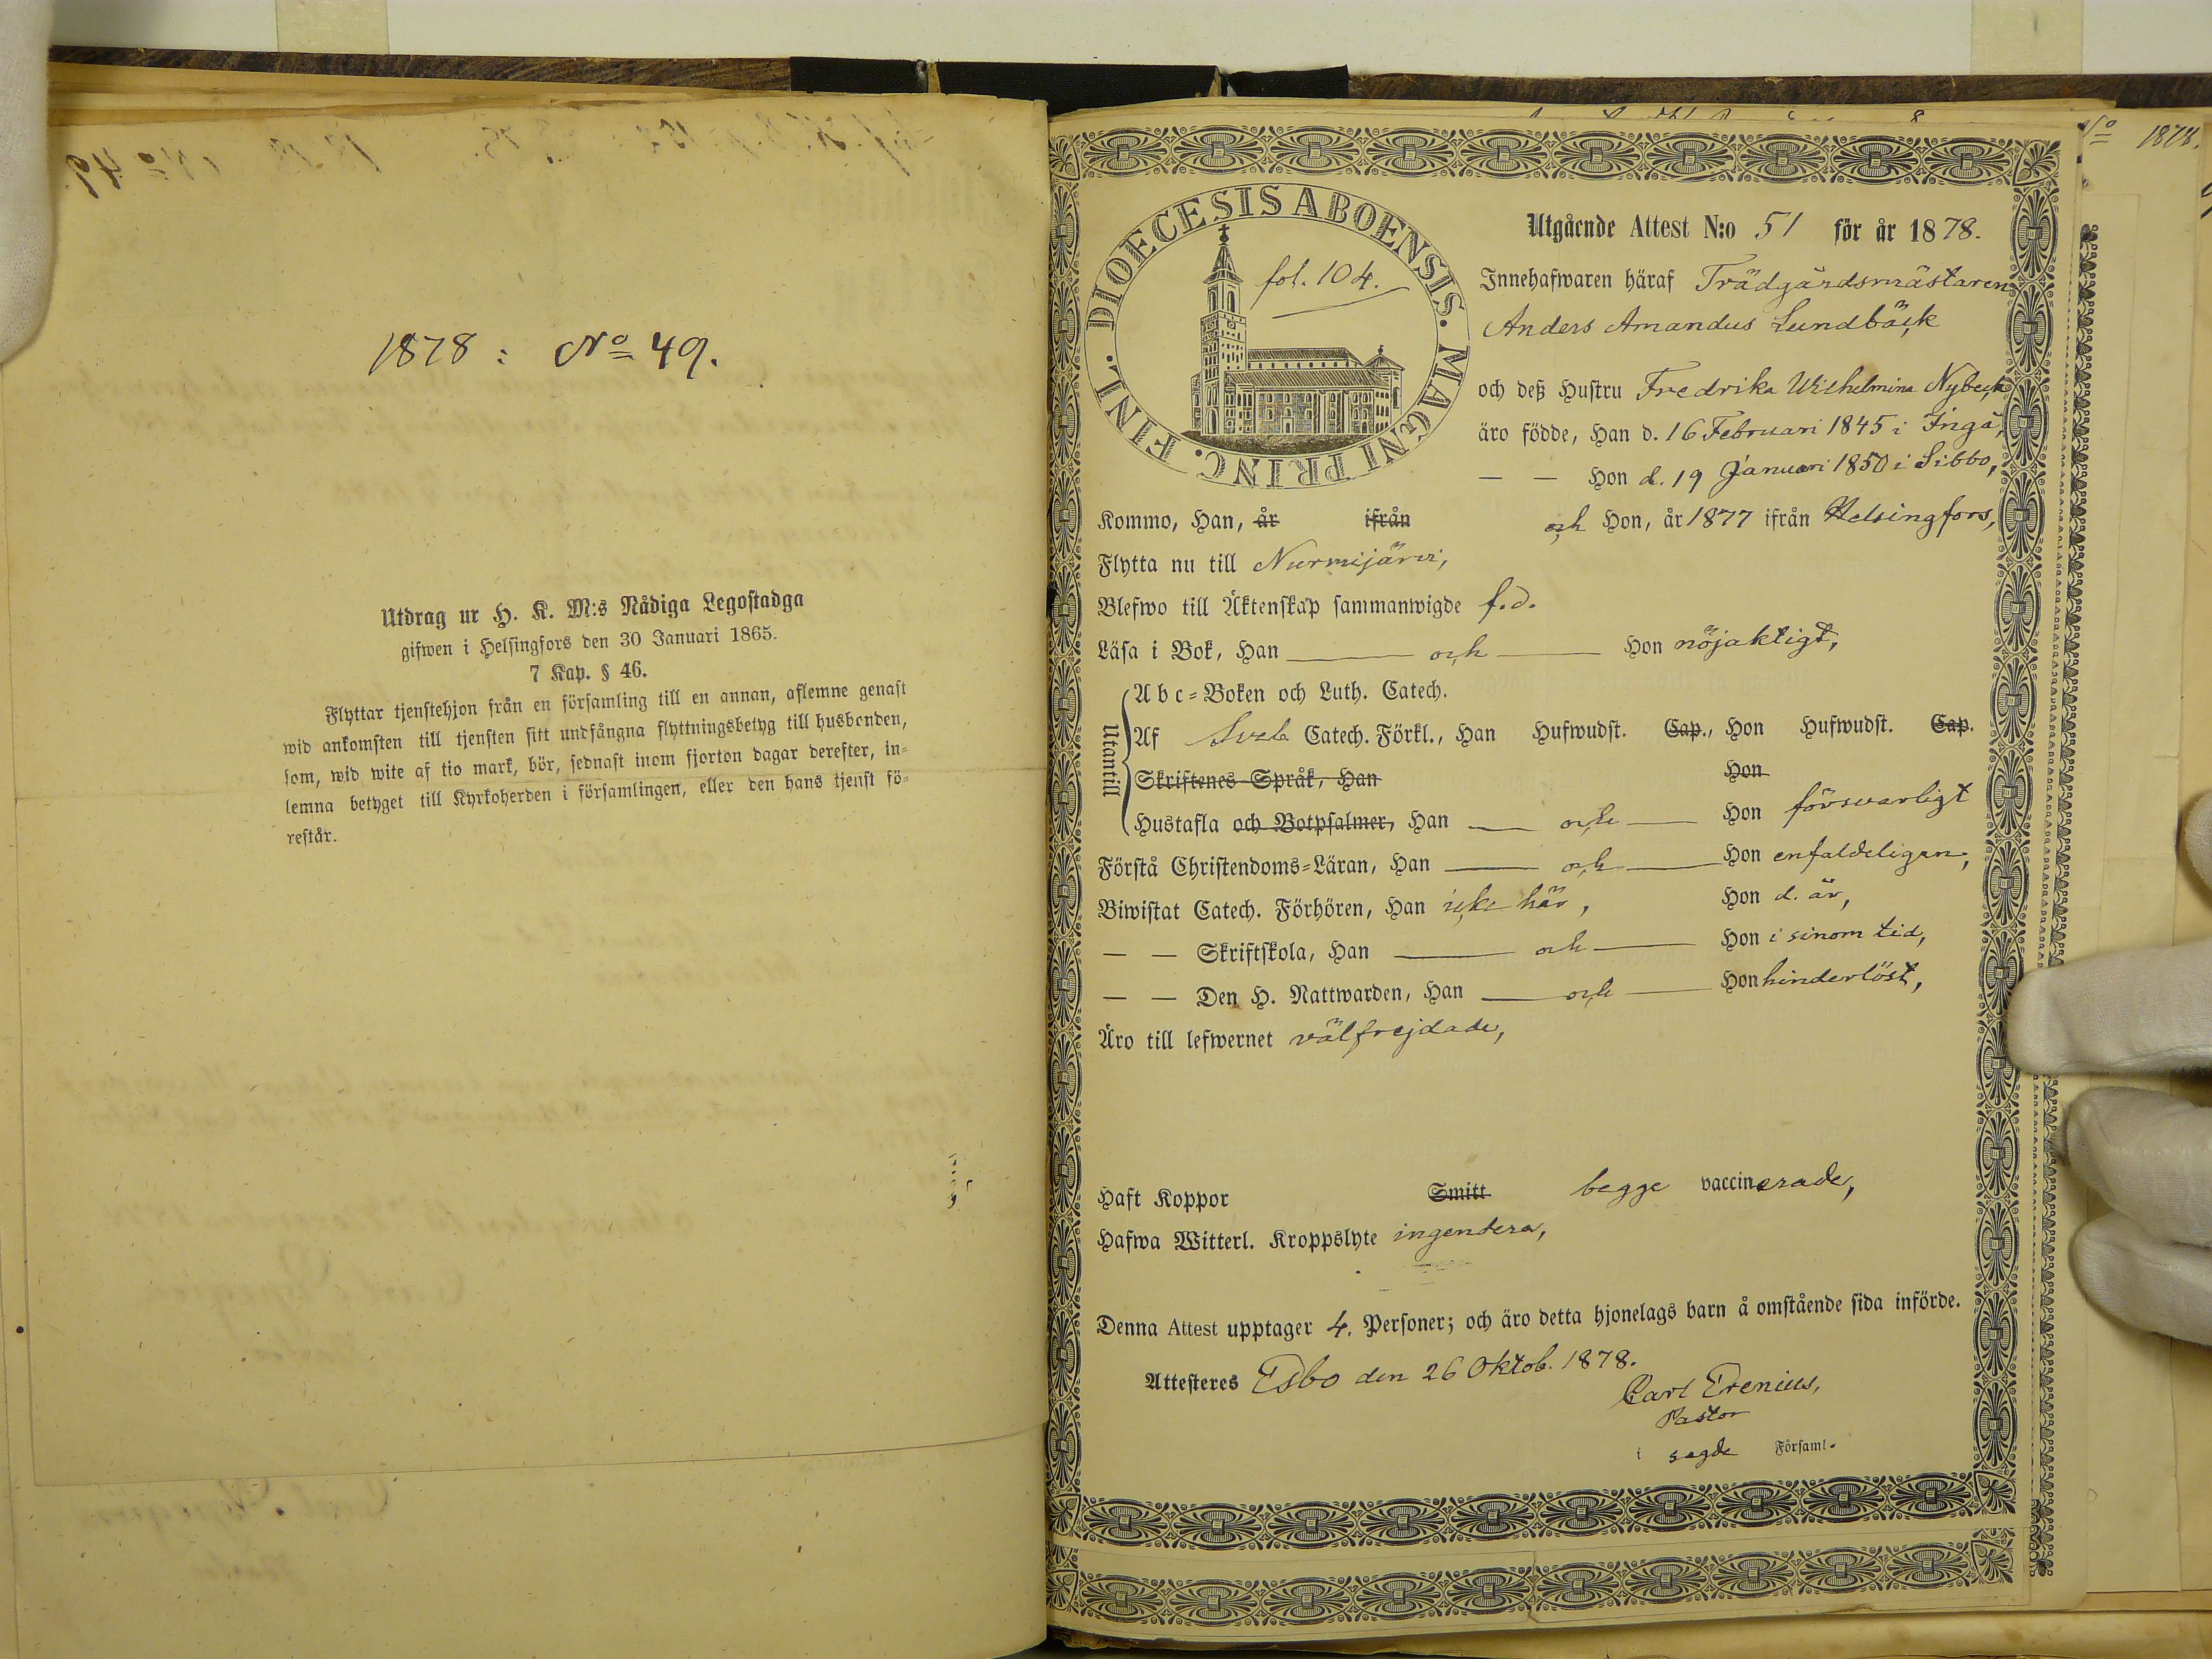 1878 : No 49.
Utdrag ur H. K. M:s Nådiga Legostadga
gifwen i Helsingfors den 30 Januari 1865.
7 Kap. § 46.
Flyttar tjenstehjon från en församling till en annan, aflemne genast
wid ankomsten till tjensten sitt undfångna flyttningsbetyg till husbonden,
som, wid wite af tio mark, bör, sednast inom fjorton dagar derefter, in-
lemna betyget till Kyrkoherden i församlingen, eller den hans tjenst fö-
restår.
No 1878.
DIOECESIS ABOENSIS. MAGNI PRINC. FINL.
fol. 104.
Utgående Attest N:o 51 för år 1878.
Innehafwaren häraf Trädgårdsmästaren
Anders Amandus Lundbäck
och deß Hustru Fredrika Wilhelmina Nybeck
äro födde, Han d. 16 Februari 1845 i Ingå,
— — Hon d. 19 Januari 1850 i Sibbo,
Kommo, Han, år ifrån och Hon, år 1877 ifrån Helsingfors,
Flytta nu till Nurmijärvi,
Blefwo till Äktenskap sammanwigde f.d.
Läsa i Bok, Han — och — Hon nöjaktigt,
Utantill
Abc-Boken och Luth. Catech.
Af Sveb Catech. Förkl., Han Hufwudst. Cap., Hon Hufwudst. Cap.
Skriftenes Språk, Han Hon
Hustafla och Botpsalmer, Han — och — Hon försvarligt
Förstå Christendoms-Läran, Han — och — Hon enfaldeligen,
Biwistat Catech. Förhören, Han icke här, Hon d. är,
— — Skriftskola, Han — och — Hon i sinom tid,
— — Den H. Nattwarden, Han — och — Hon hinderlöst,
Äro till lefwernet välfrejdade,
Haft Koppor Smitt begge vaccinerade,
Hafwa Witterl. Kroppslyte ingendera,
Denna Attest upptager 4. Personer; och äro detta hjonelags barn å omstående sida införde.
Attesteres Esbo den 26 Oktob. 1878.
Carl Erenius,
Pastor
i sagde Församl.